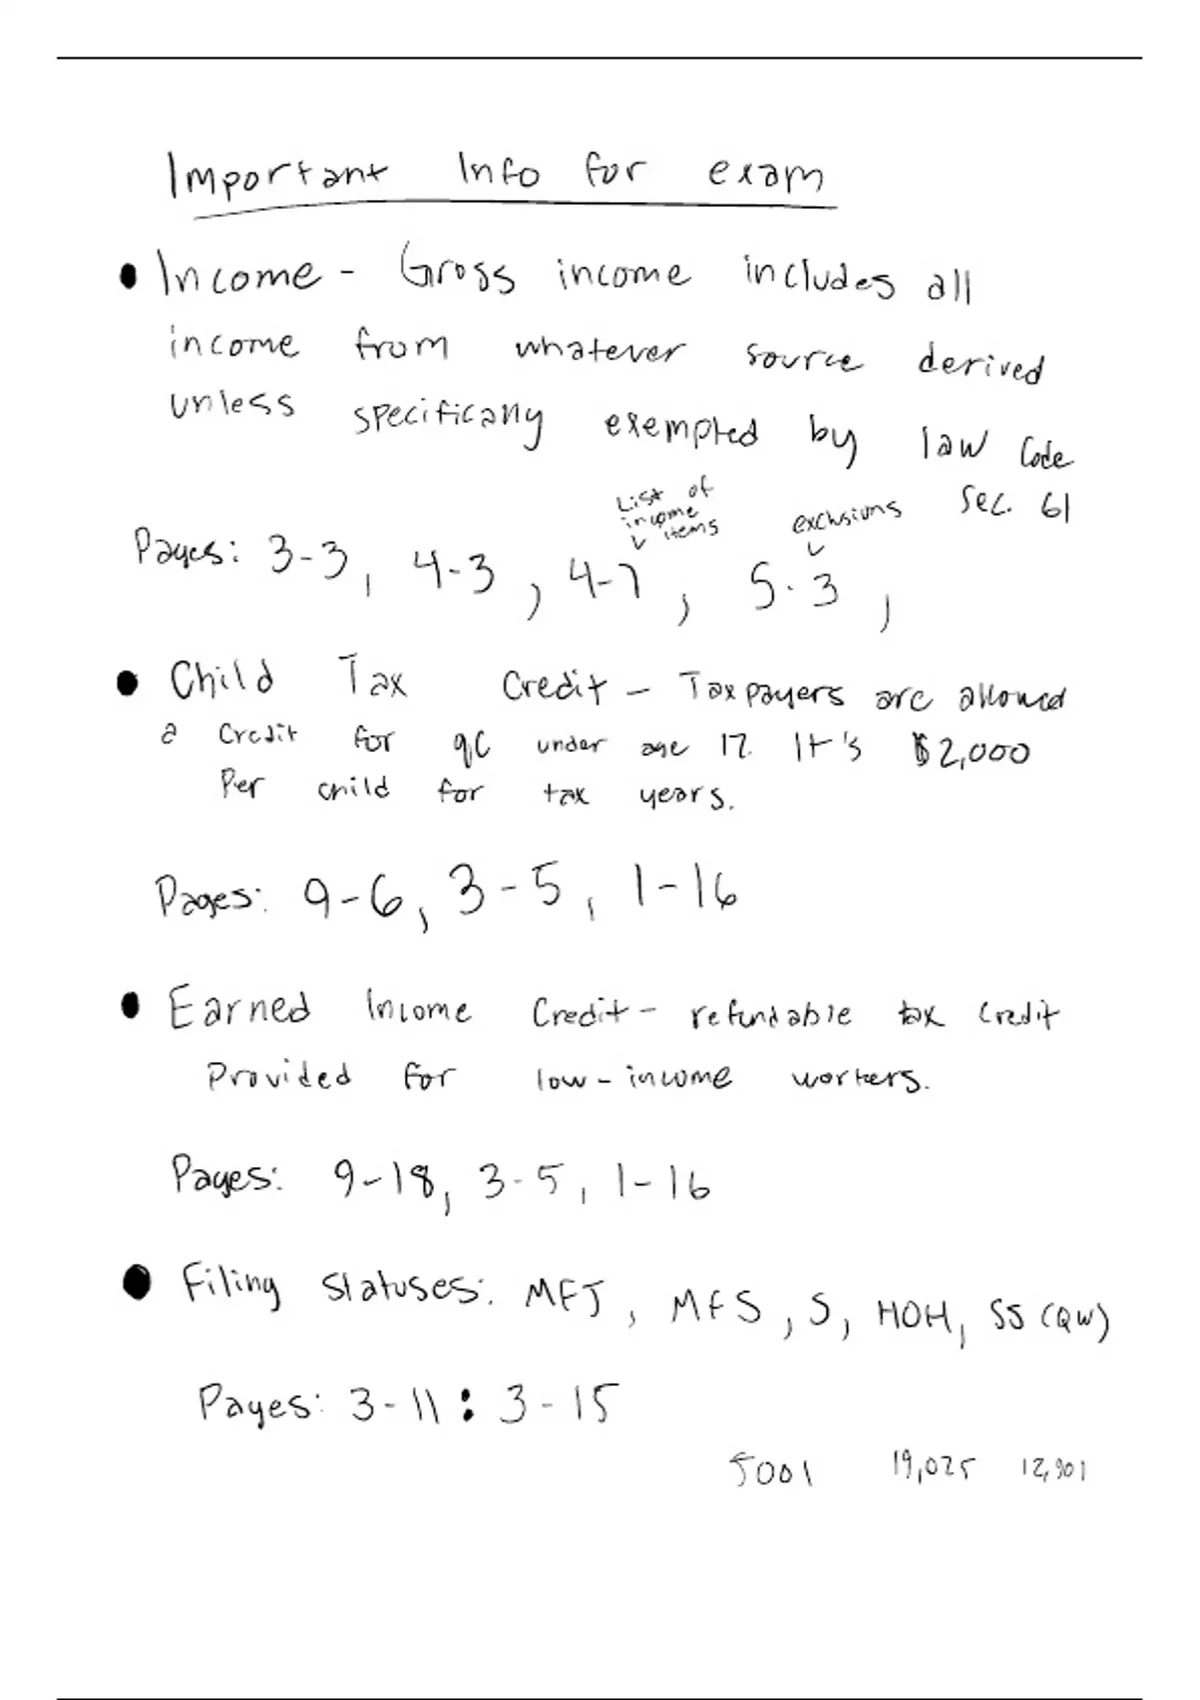 Important Info for exam
• Income - Gross income includes all
income from whatever source derived
unless specifically exempted by law Code
Sec. 61
List of
income
items
exclusions
Pages: 3-3, 4-3, 4-7, 5-3,
• Child Tax Credit - Taxpayers are allowed
a credit for qc under age 17. It's $2,000
Per child for tax years.
Pages: 9-6, 3-5, 1-16
• Earned Income Credit - refundable tax credit
Provided for low-income workers.
Pages: 9-18, 3-5, 1-16
• Filing statuses: MFJ, MFS, S, HOH, SS (QW)
Pages: 3-11 : 3-15
5001 19,025 12,901